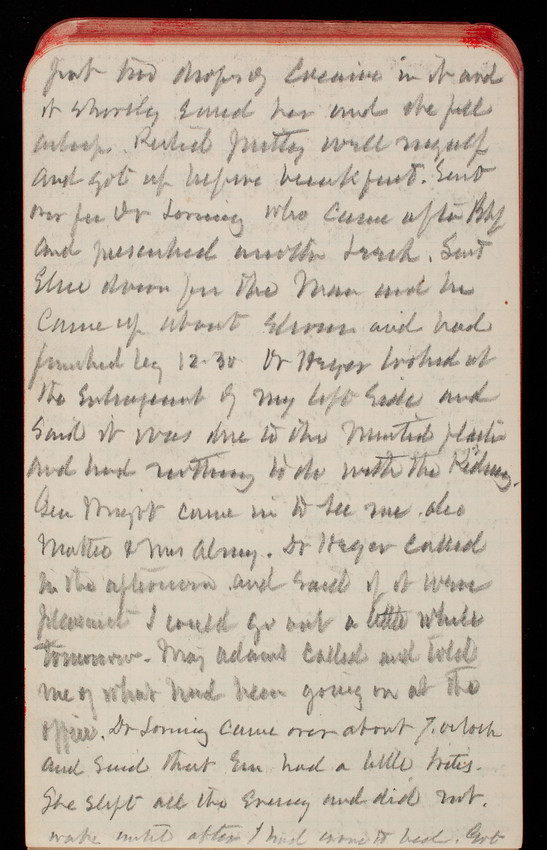 put two drops of Cocaine in it and
it shortly eased her and she fell
asleep. Rested pretty well myself
and got up before breakfast. Sent
over for Dr Loring who came after Bkf
and prescribed another . Sent
Elise down for the Man and he
came up about eleven and had
finished by 12-30 Dr Heger looked at
the Enlargement of my left Side and
said it was due to the Mustard plaster
and had nothing to do with the Kidney.
Gen Wright came in to see me also
Mattie & Mrs Almy. Dr Heger Called
in the afternoon and said if it were
pleasant I could go out a little while
tomorrow. Maj Adams Called and told
me of what had been going on at the
office. Dr Loring came over about 7. oclock
and said that Em had a little .
She slept all the Evening and did not.
wake until after I had gone to bed. Got